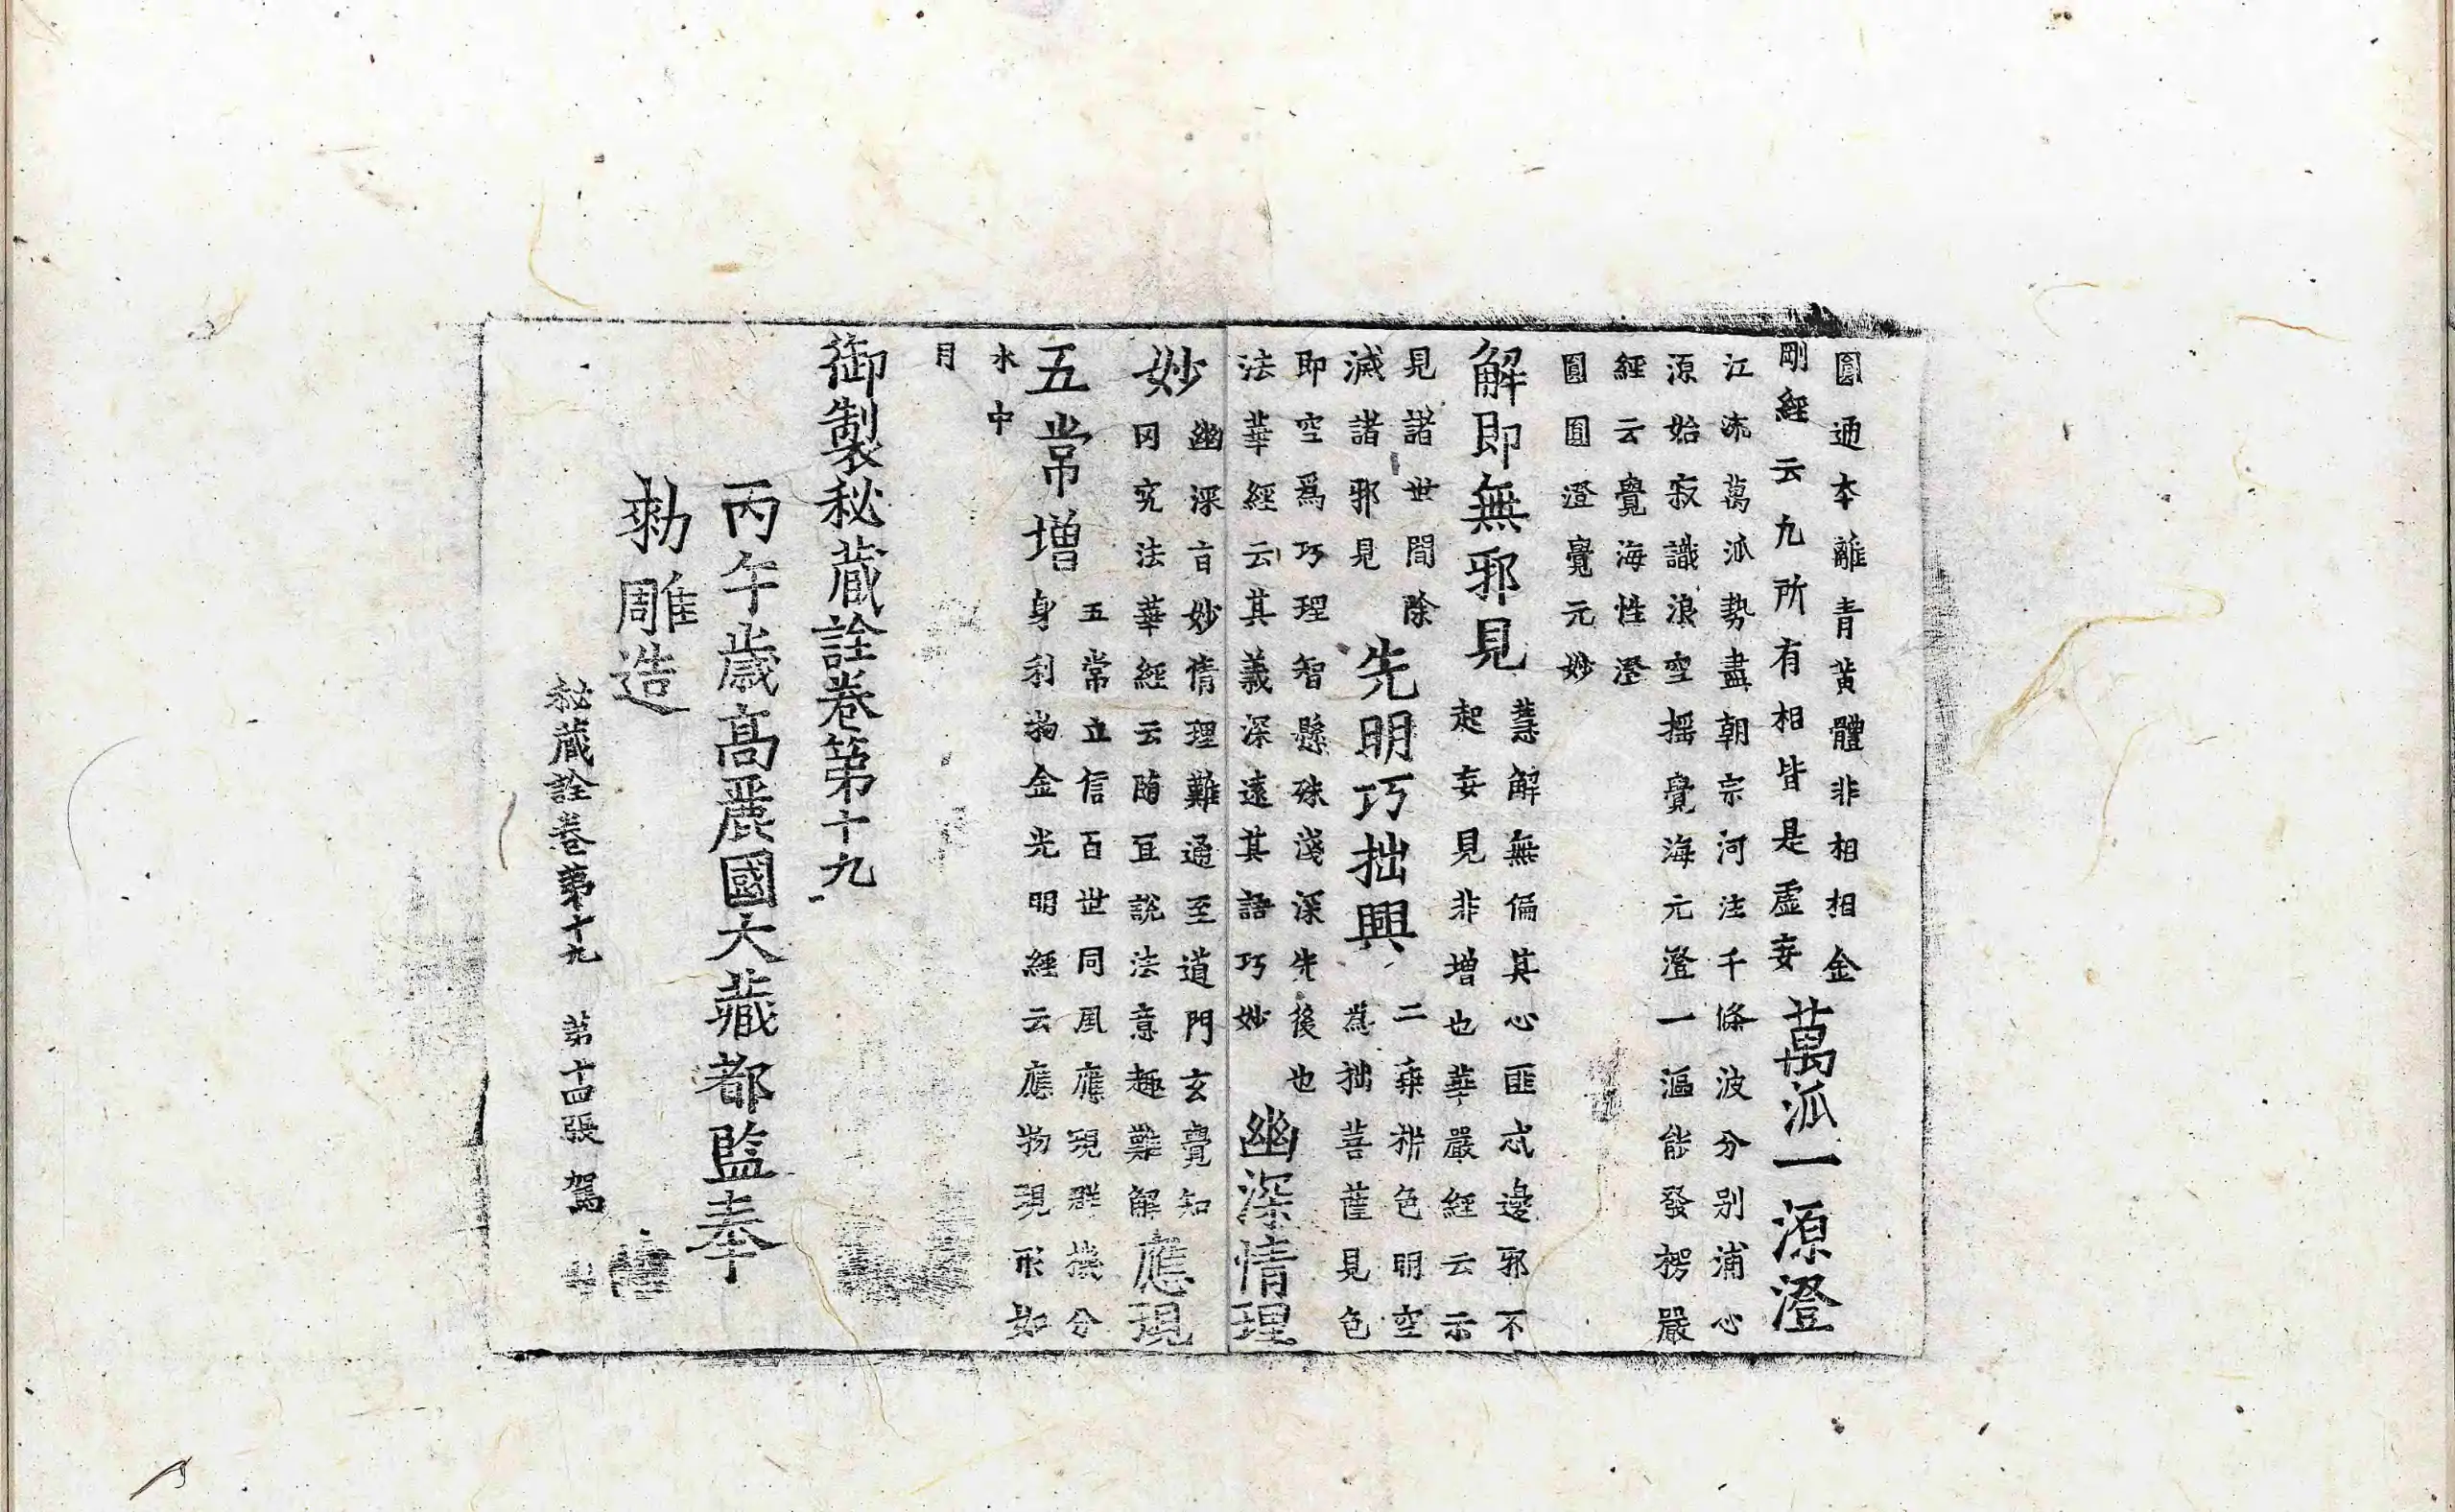 圓通本離青黃體非相相金
剛經云九所有相皆是虛妄
萬泒一源澄
江流萬泒勢盡朝宗河注千條波分別浦心
源始寂識浪空搖覺海元澄一漚能發楞嚴
經云覺海性澄
圓圓澄覺元妙
解即無邪見
慧解無偏其心匪忒邊邪不
起妄見非增也華嚴經云示
見諸世間除
滅諸邪見
先明巧拙興
二乘析色明空
為拙菩薩見色
即空爲巧理智懸殊淺深先後也
法華經云其義深遠其語巧妙
幽深情理
妙
幽深旨妙情理難通至道門玄覺知
罔究法華經云隨宜說法意趣難解
應現
五常增
五常立信百世同風應現群機分
身利物金光明經云應物現形如
水中
月
御製秘藏詮卷第十九
丙午歲高麗國大藏都監奉
勑雕造
秘藏詮卷第十九 第十四張 駕